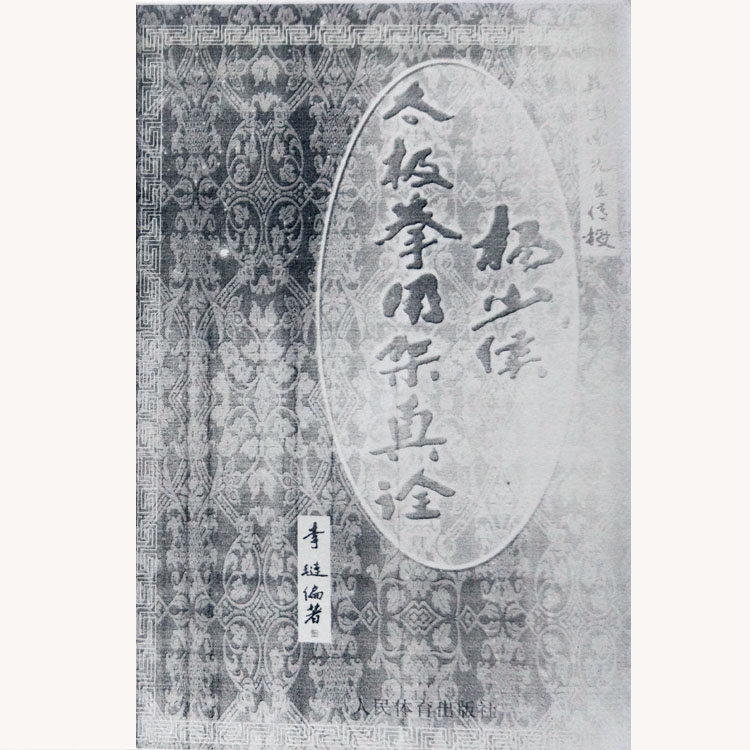 吴图南先生传授
杨少侯
太极拳用架真诠
李琏编著
人民体育出版社